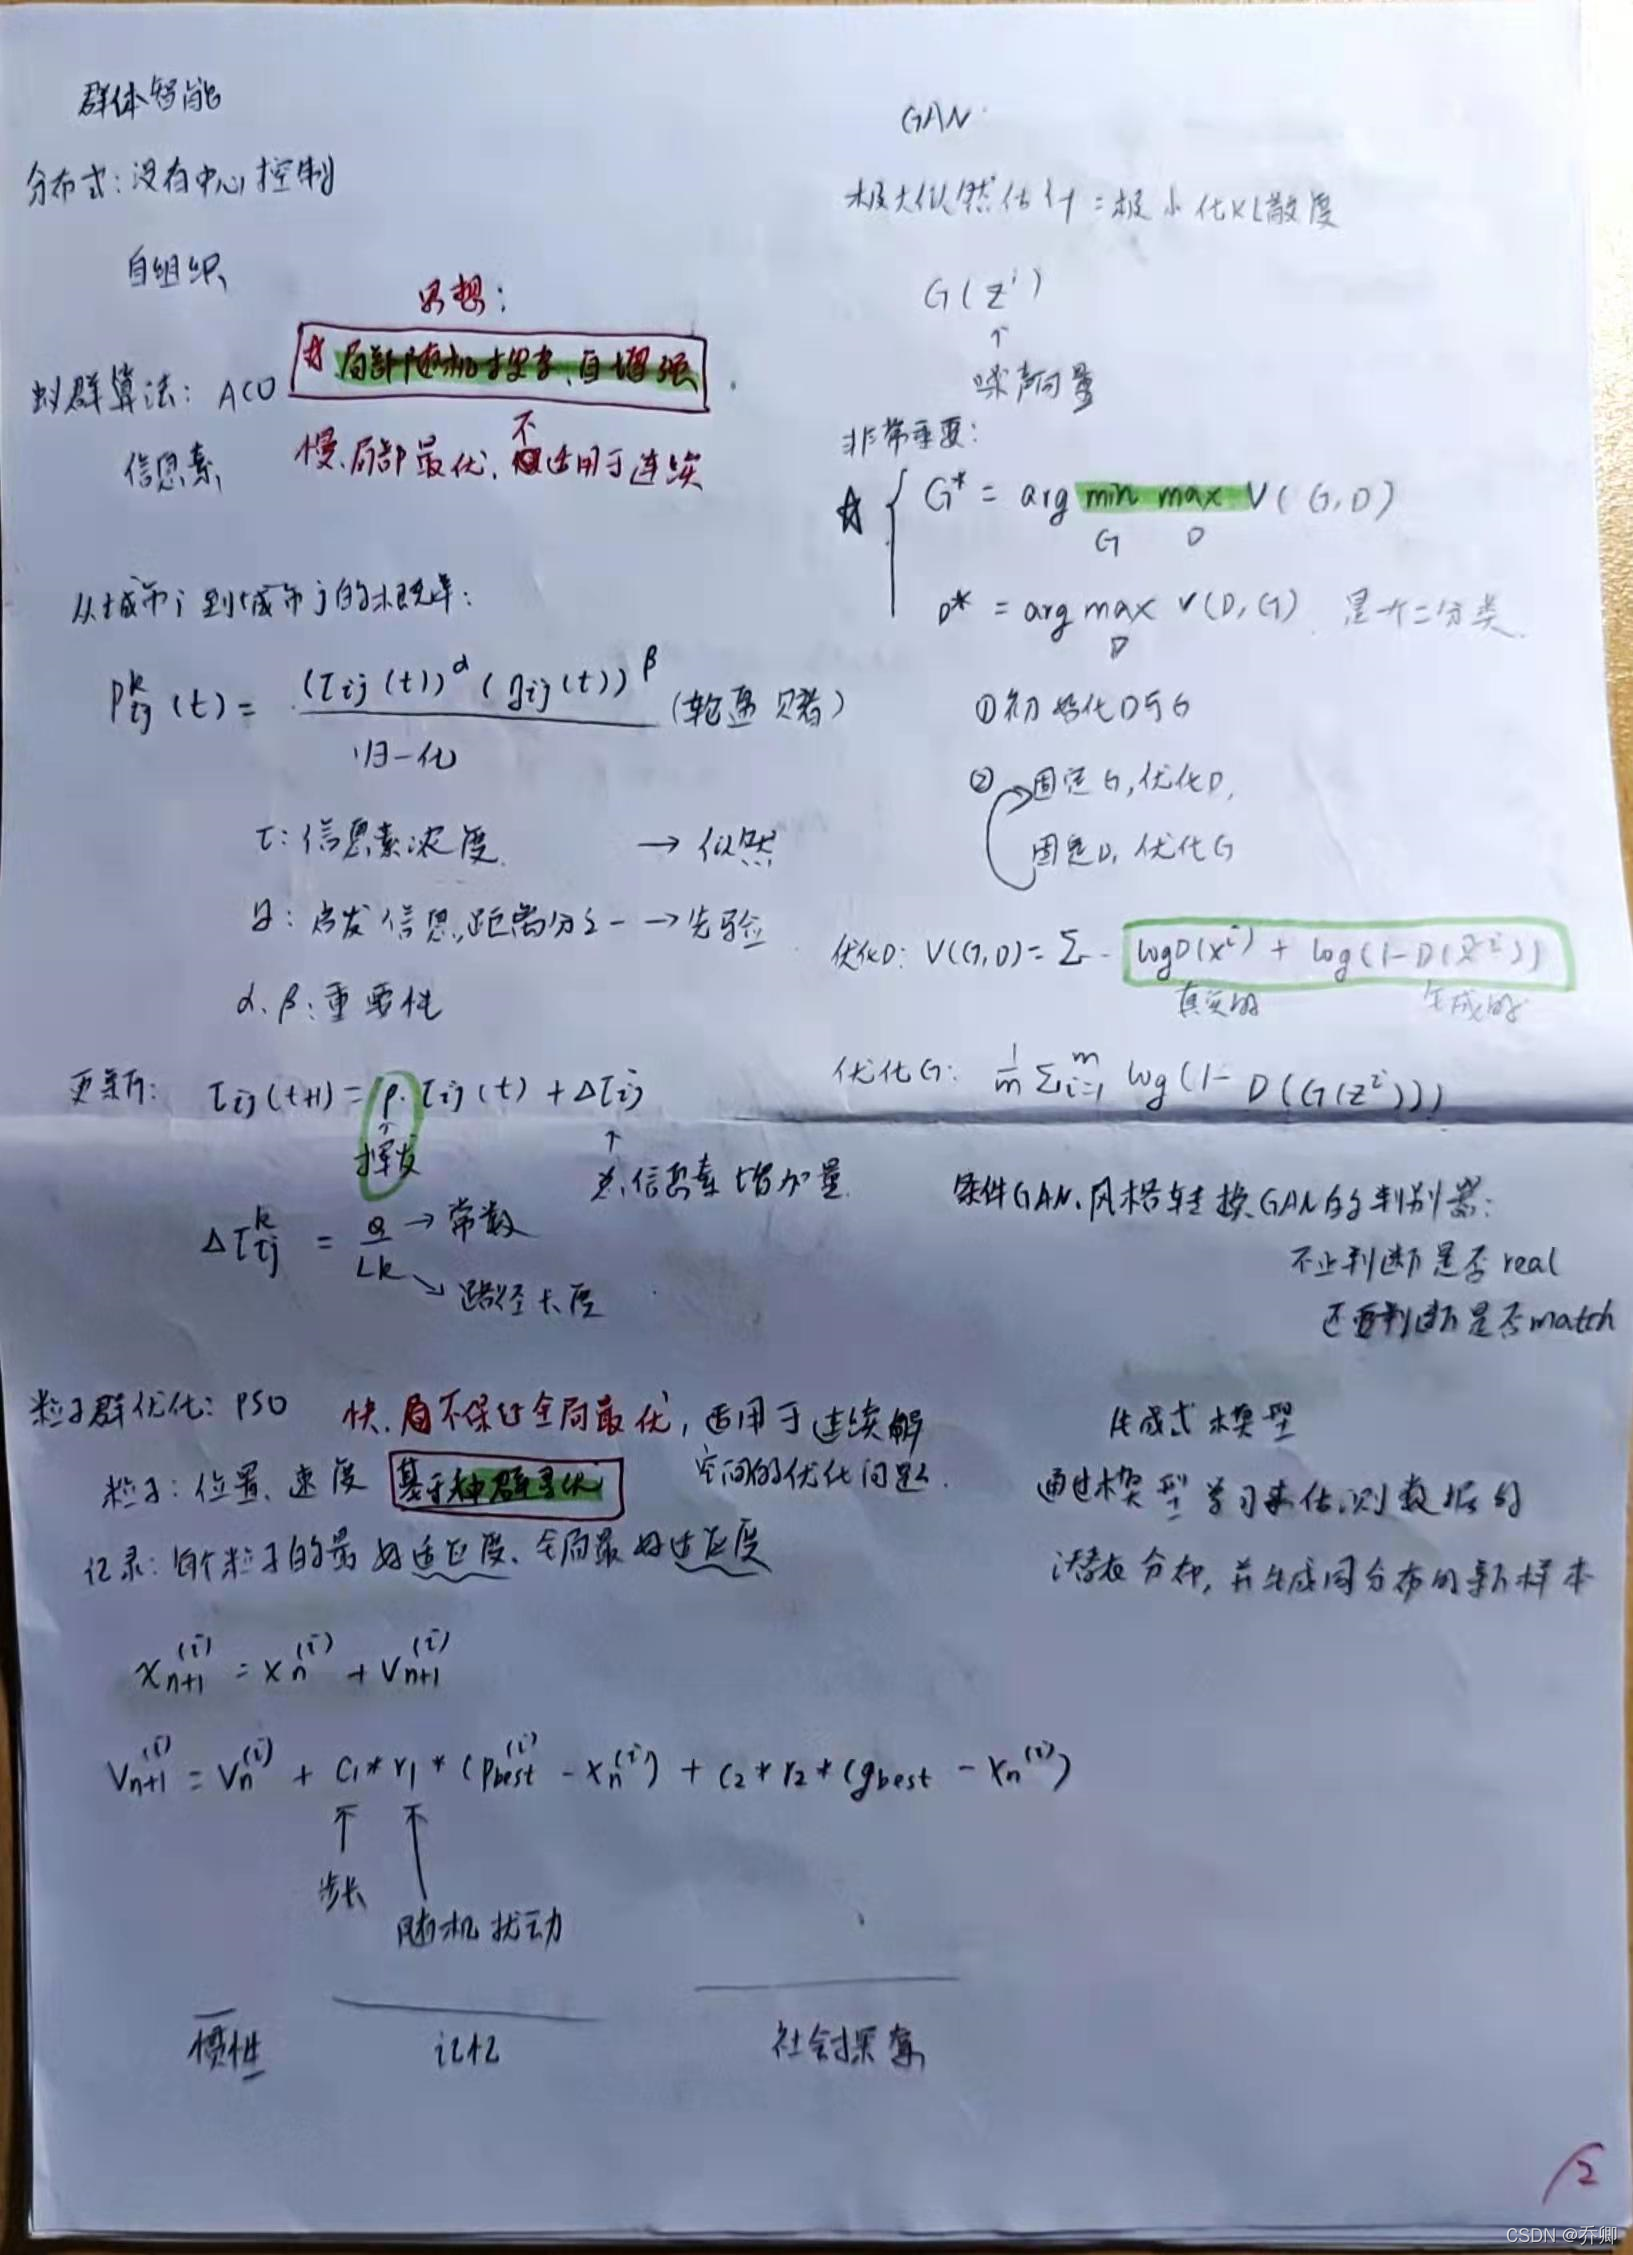 群体智能
分布式：没有中心控制
自组织
思想：
蚁群算法：ACO ☆局部随机搜索、自增强
信息素 慢、局部最优、不适用于连续
从城市i到城市j的概率：
P_{ij}^k(t) = (τij(t))^α (ηij(t))^β (轮盘赌)
归一化
τ：信息素浓度 → 似然
η：启发信息，距离分之一 → 先验
α、β：重要性
更新：τij(t+1) = ρ·τij(t) + Δτij
挥发 总信息素增加量
Δτ_{ij}^k = Q → 常数
Lk → 路径长度
粒子群优化：PSO 快、不保证全局最优，适用于连续解
空间的优化问题
粒子：位置、速度 基于种群寻优
记录：每个粒子的最好适应度、全局最好适应度
x_{n+1}^{(i)} = x_n^{(i)} + v_{n+1}^{(i)}
v_{n+1}^{(i)} = v_n^{(i)} + c1*r1*(p_{best}^{(i)} - x_n^{(i)}) + c2*r2*(g_{best} - x_n^{(i)})
步长
随机扰动
惯性 记忆 社会探索
GAN
极大似然估计=极小化KL散度
G(z^i)
↑
噪声向量
非常重要：
☆ { G* = arg min max V(G,D)
G D
D* = arg max V(D,G) 是个二分类
D
①初始化D与G
② 固定G,优化D,
固定D,优化G
优化D：V(G,D)=Σ logD(x^i) + log(1-D(x̃^i))
真实的 生成的
优化G：1/m Σ_{i=1}^m log(1-D(G(z^i)))
条件GAN、风格转换GAN的判别器：
不止判断是否real
还要判断是否match
生成式模型
通过模型学习来估测数据的
潜在分布，并生成同分布的新样本
2
CSDN @乔卿